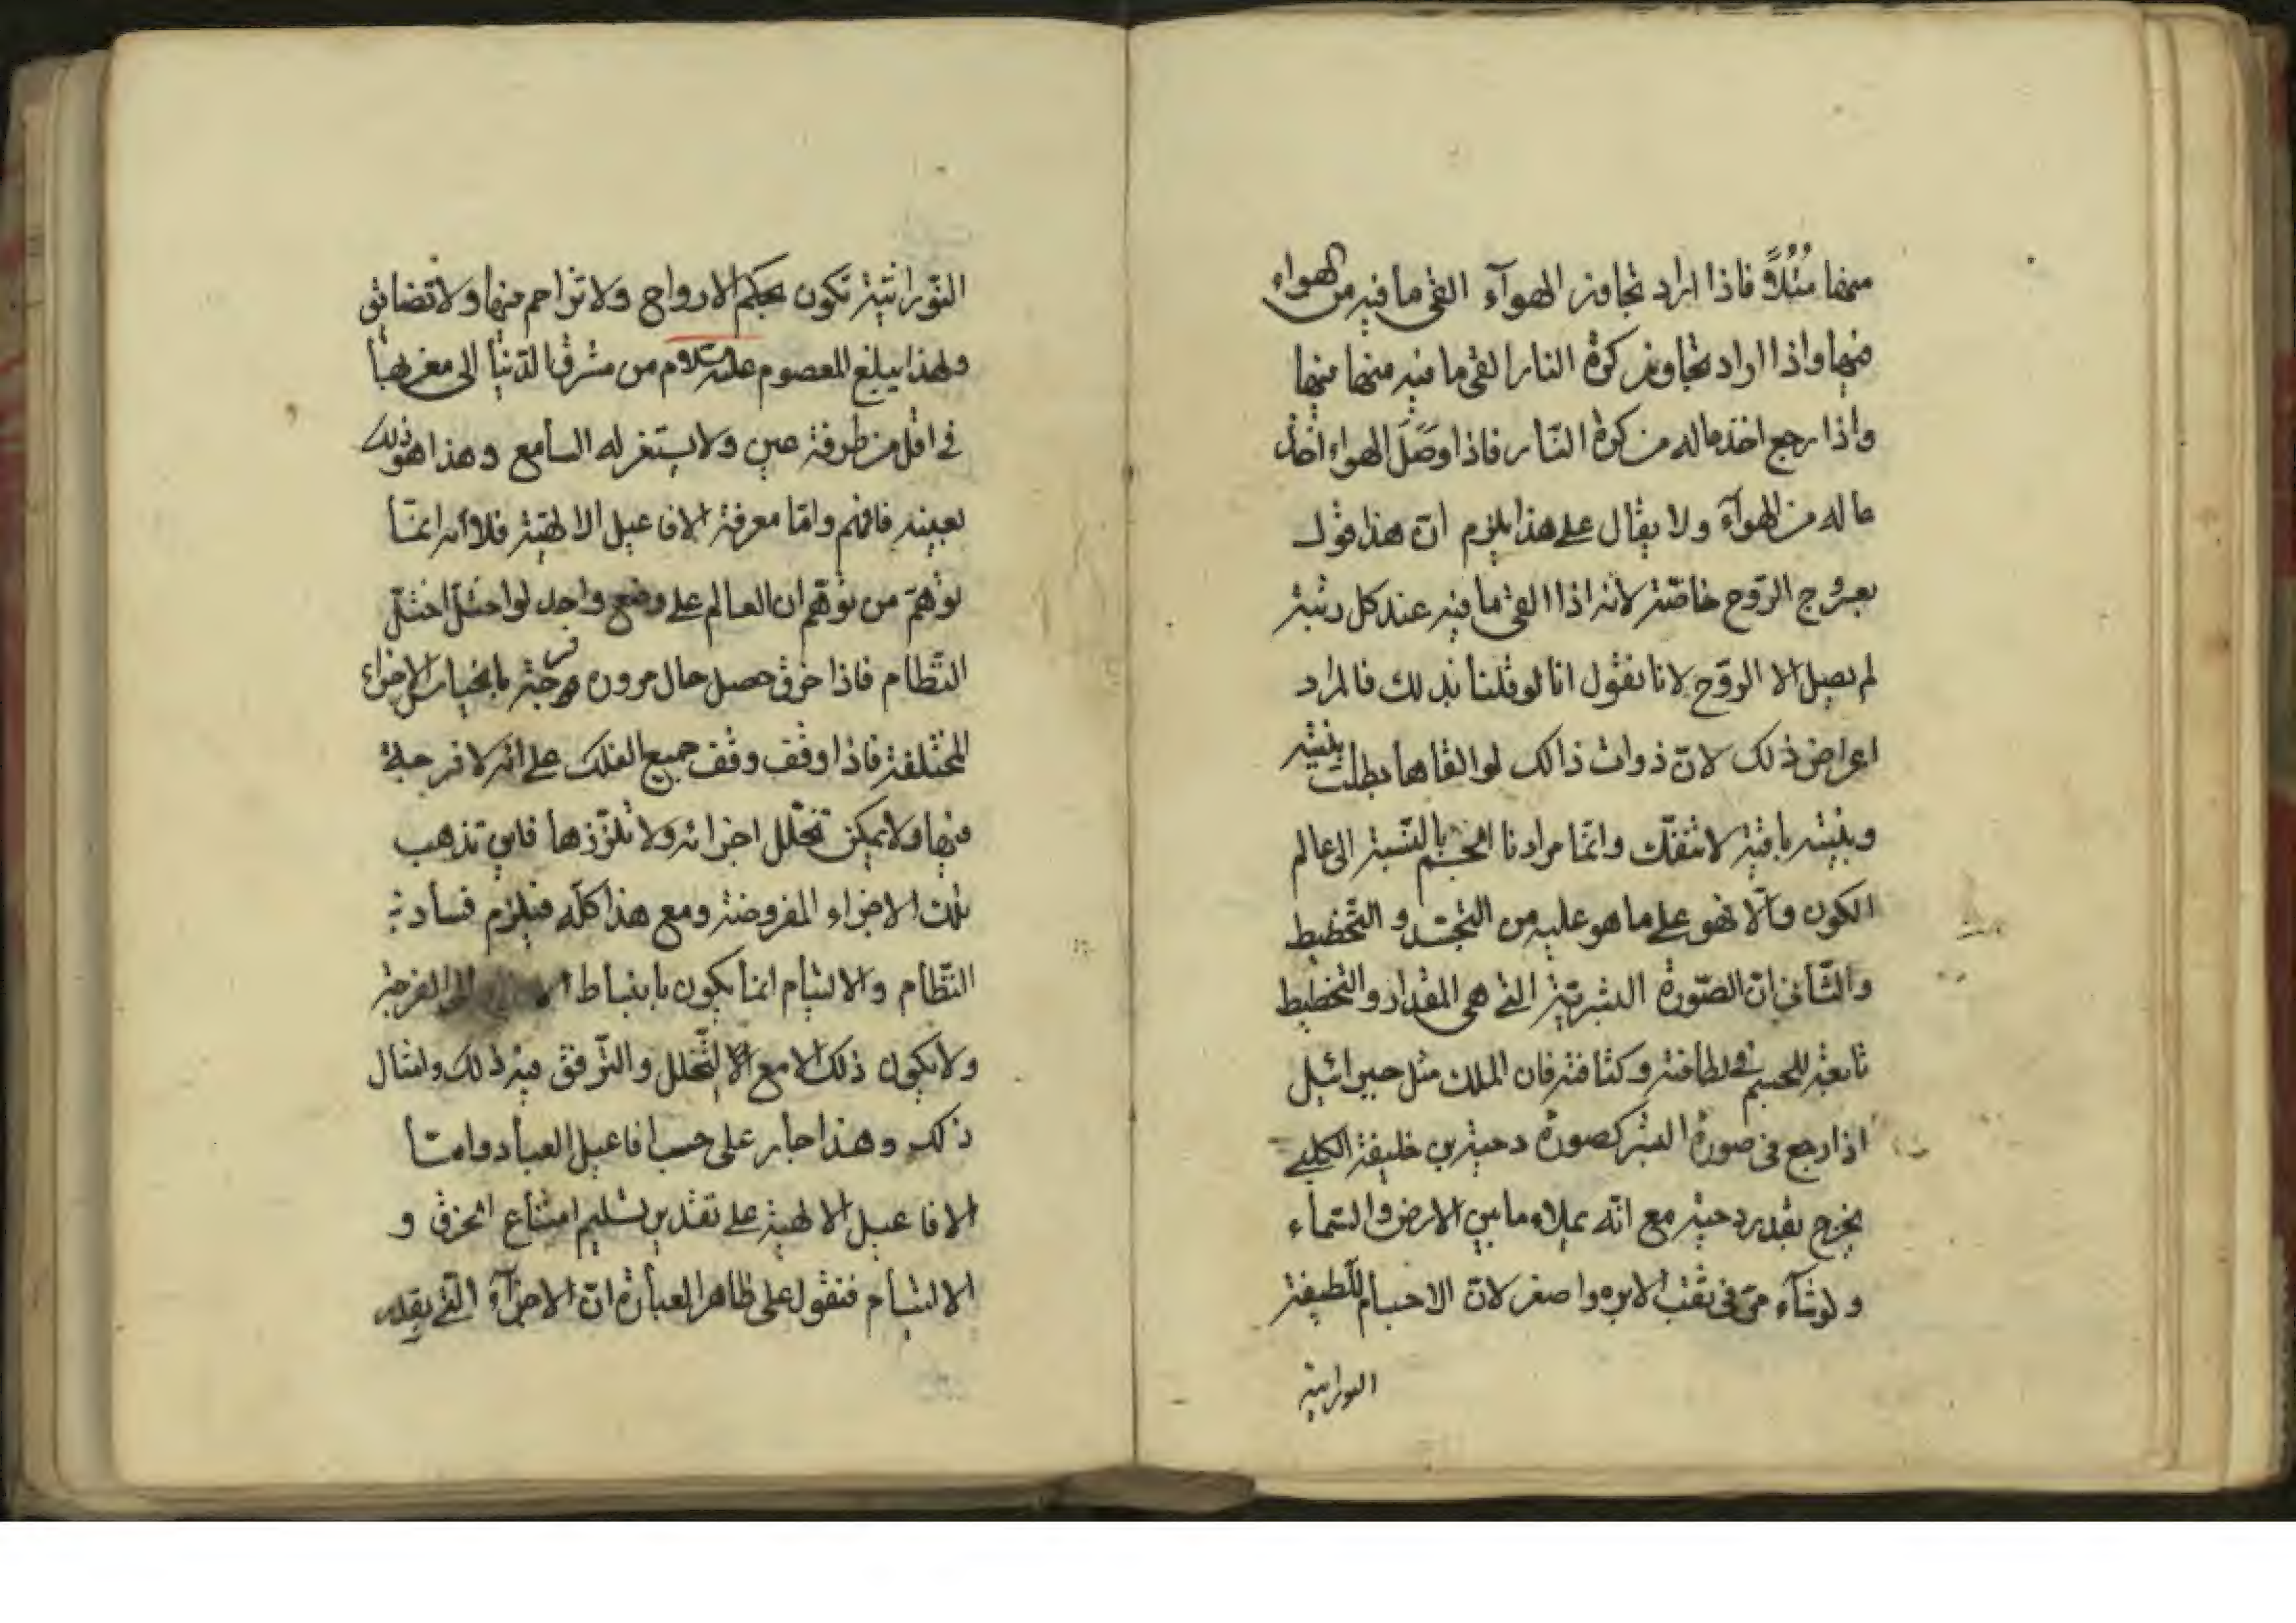 منها مثلاً فاذا اراد تجاوز الهوآء القى ما فيه من الهواء
فيها واذا اراد تجاوز كرة النار القى ما فيه منها فيها
واذا رجع اخذ ماله من كرة النّار فاذا وصل الهواء اخذ
ما له من الهوآء ولا يقال على هذا يلزم انّ هذا قول
بعروج الرّوح خاصّة لانه اذا القى ما فيه عند كل رتبة
لم يصل الا الروّح لانا نقول انا لو قلنا بذلك فالمراد
اعراض ذلك لانّ ذوات ذالك لو القاها بطلت بنيته
وبنيته باقية لا تتفكّ وانّما مرادنا الجسم بالنّسبة الى عالم
الكون والّا فهو على ما هو عليه من التجسّد و التّخطيط
والثّانى انّ الصّورة البشريّة التى هى المقدار والتخطيط
تابعة للجسم فى لطافته وكثافته فان الملك مثل جبرائيل
اذا رجع فى صورة البشر كصورة دحية بن خليفة الكلبى
يخرج بقدر دحية مع انّه يملاء ما بين الارض والسّمآء
ولو شآء مرّ فى ثقب الابره واصغر لانّ الاجسام اللّطيفة
النورانية
النّورانيّة تكون بحكم الارواح ولا تزاحم فيها ولا تضايق
ولهذا يبلغ المعصوم عليه السّلام من مشرق الدّنيا الى مغربها
فى اقل من طرفة عين ولا يستغر له السامع وهذا هو ذلك
بعينه فافهم وامّا معرفة الافاعيل الالهيّة فلانّه انمّا
توهّم من توهّم ان العالم على وضع واحد لو اختلّ اختلّ
النّظام فاذا خرق حصل حال مروره فرجة بانجياب الاجزاء
المختلفة فاذا وقف وقف جميع الفلك على انّه لا فرجة
فيها ولا يمكن تخلّل اجزائه ولا تلزّزها فاين تذهب
تلك الاجزاء المفروضة ومع هذا كلّه فيلزم فساد
النّظام والالتيام انما يكون بانبساط الى الفرجة
ولا يكون ذلك الا مع التّخلل والترّقق فيه ذلك وامثال
ذلك وهذا جار على حسب افاعيل العباد وامّا
الافاعيل الالهية على تقدير تسليم امتناع الخرق و
الالتيام فنقول على ظاهر العبارة انّ الاجزآء التى بقدر